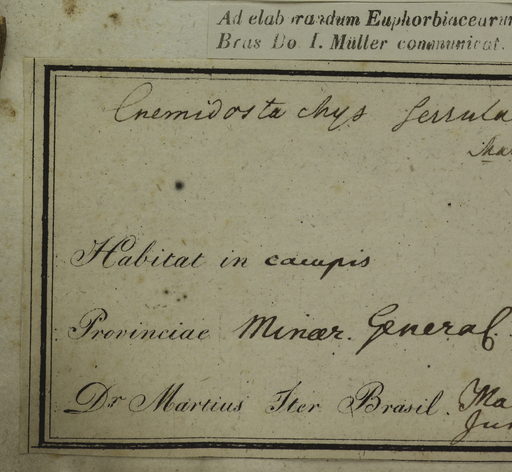 Ad elaborandum Euphorbiacearum
Bras Do I. Müller communicat.
Cnemidostachys serrula
Mar
Habitat in campis
Provinciae Minar. General.
Dr Martius Iter Brasil. Ma
Jun